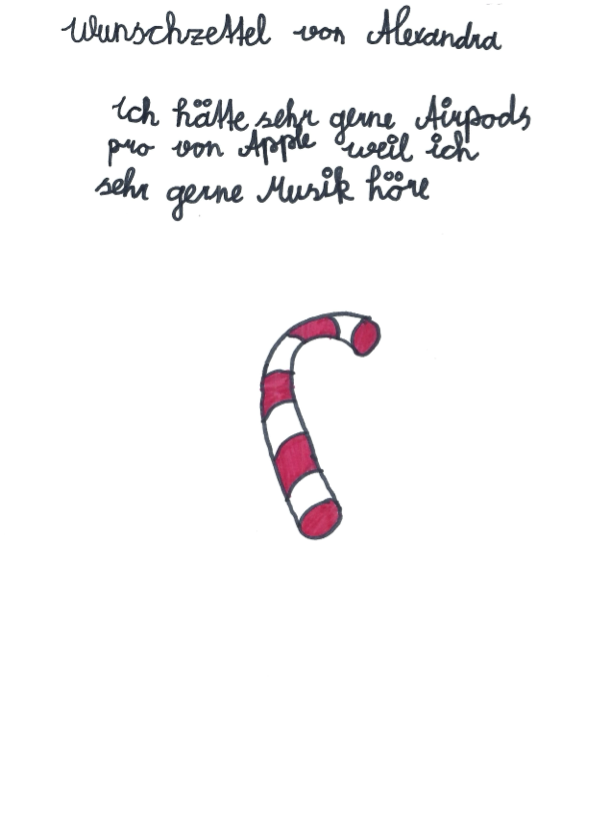 Wunschzettel von Alexandra
Ich hätte sehr gerne Airpods
pro von Apple weil ich
sehr gerne Musik höre